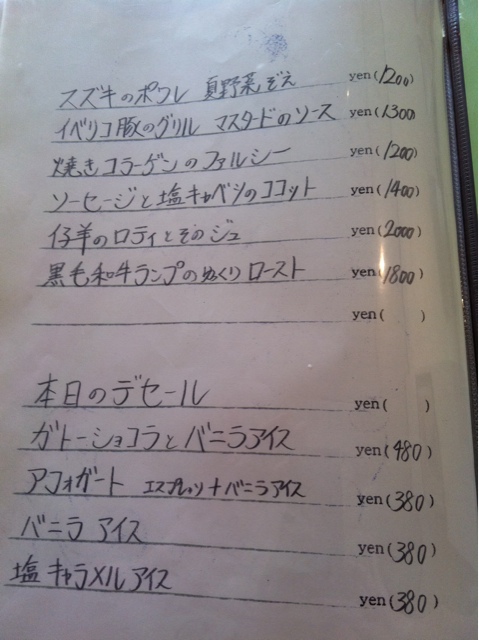 スズキのポワレ 夏野菜ぞえ yen(1200)
イベリコ豚のグリル マスタードのソース yen(1300)
焼きコラーゲンのファルシー yen(1200)
ソーセージと塩キャベツのココット yen(1400)
仔羊のロティとそのジュ yen(2000)
黒毛和牛ランプのゆっくりロースト yen(1800)
yen( )
本日のデセール yen( )
ガトーショコラとバニラアイス yen(480)
アフォガート エスプレッソ+バニラアイス yen(380)
バニラアイス yen(380)
塩キャラメルアイス yen(380)